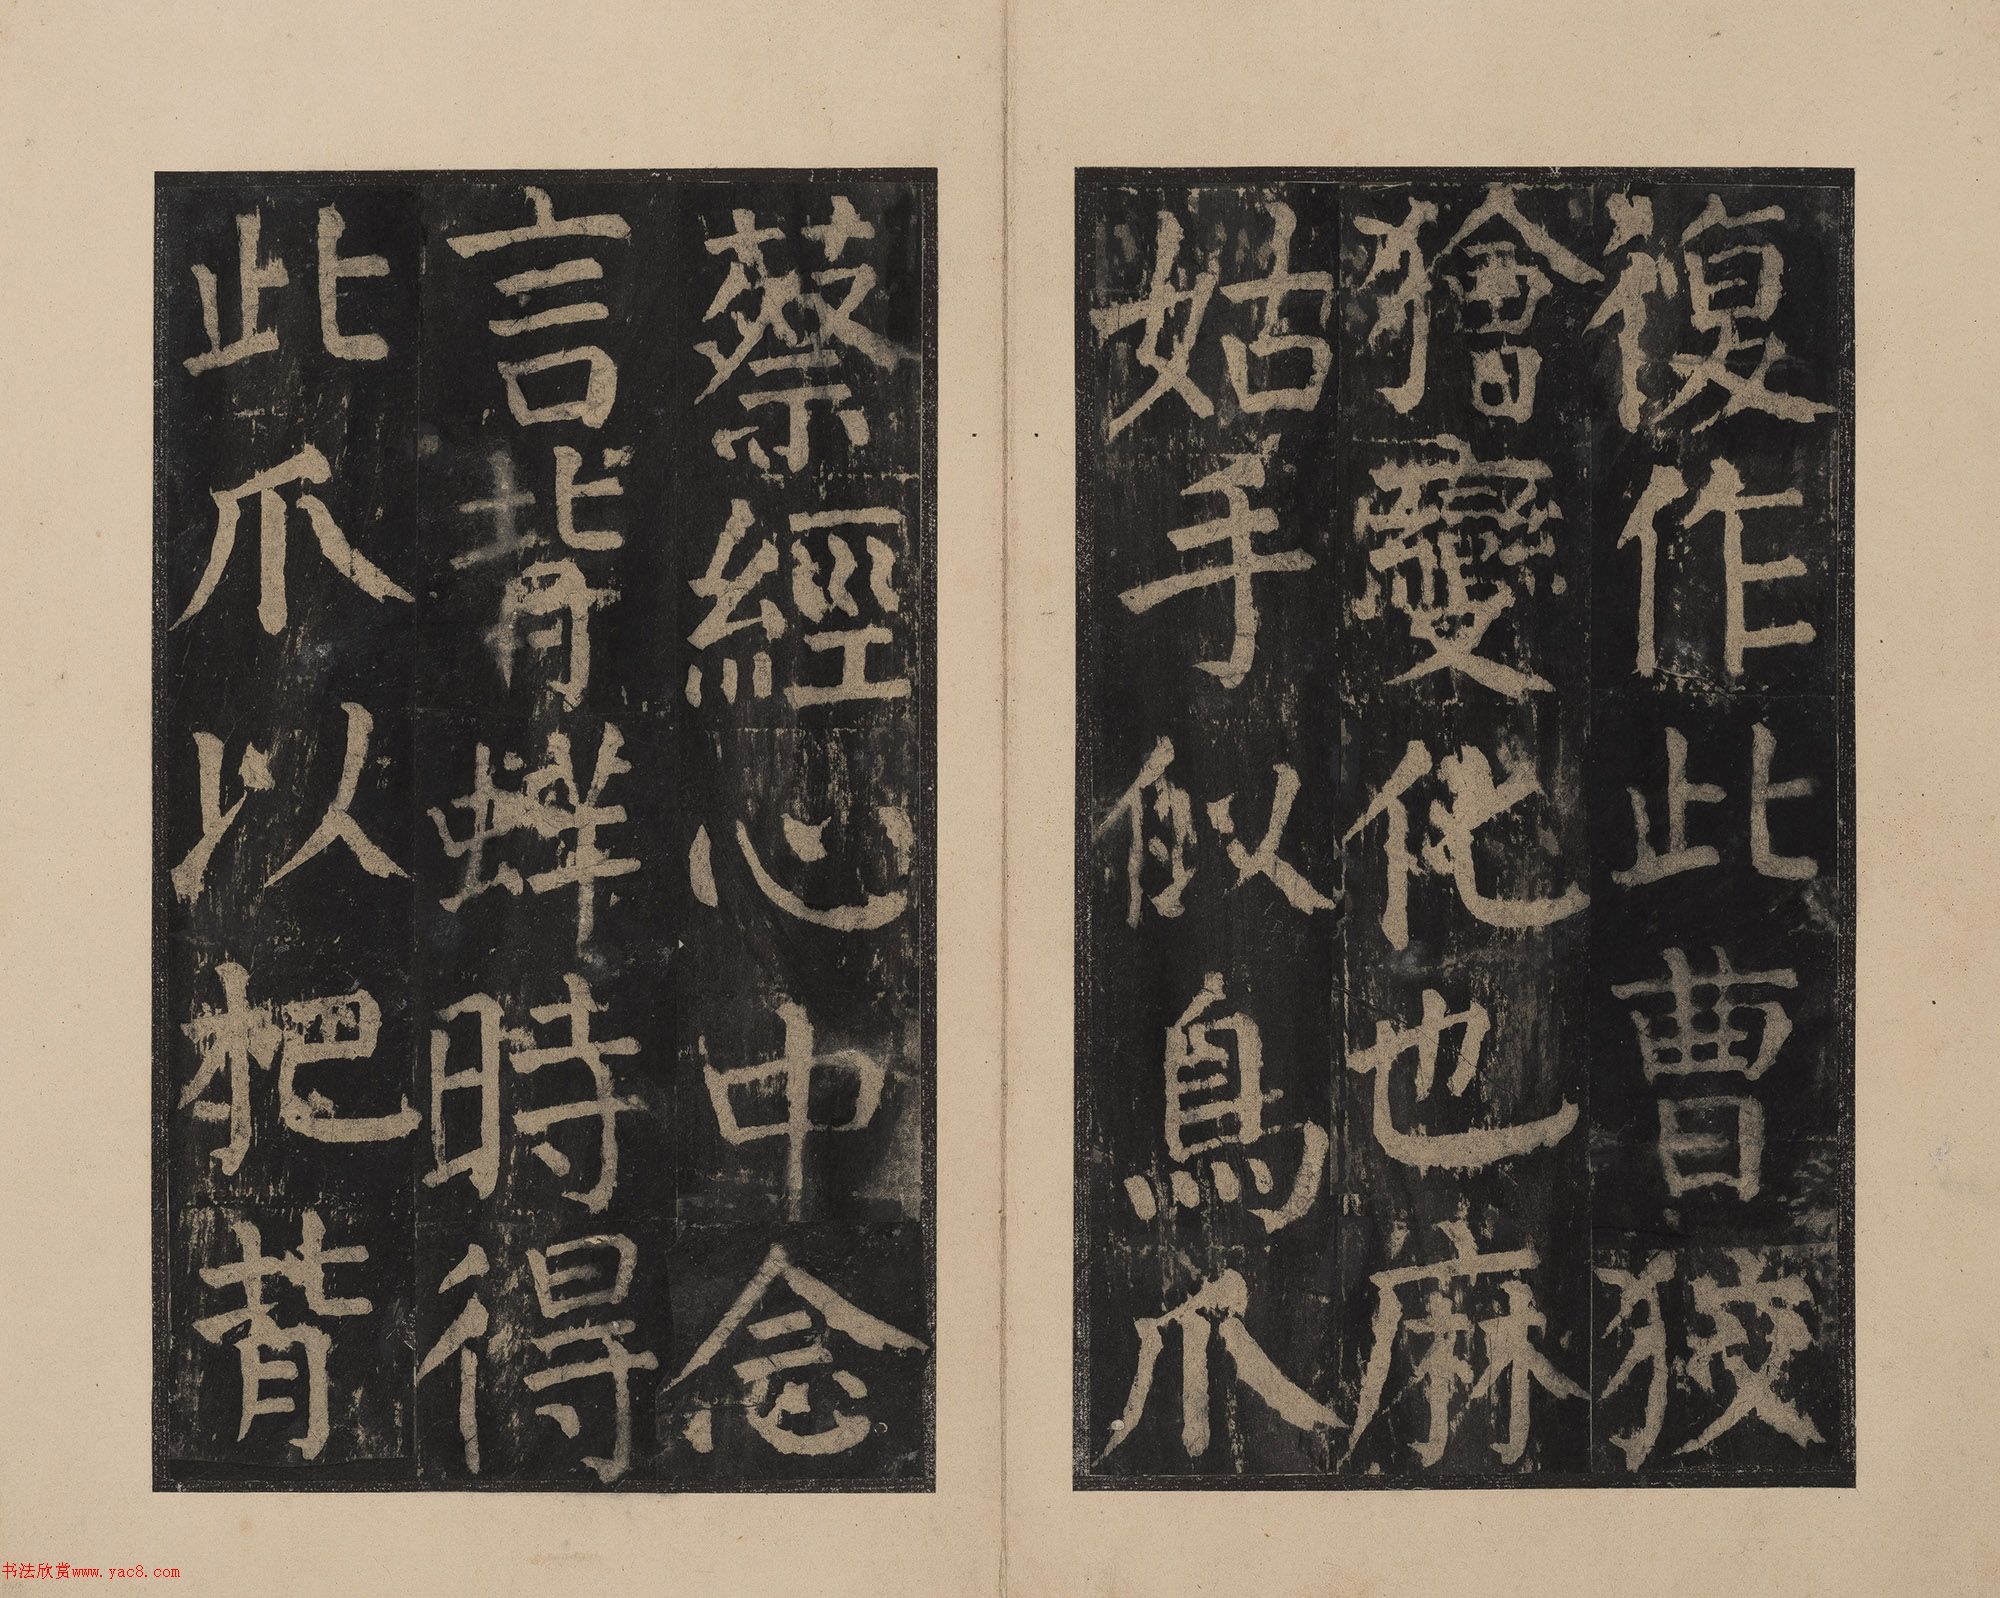 復作此曹狡
獪變化也麻
姑手似鳥爪
蔡經心中念
言背蛘時得
此爪以杷背
书法欣赏www.yac8.com